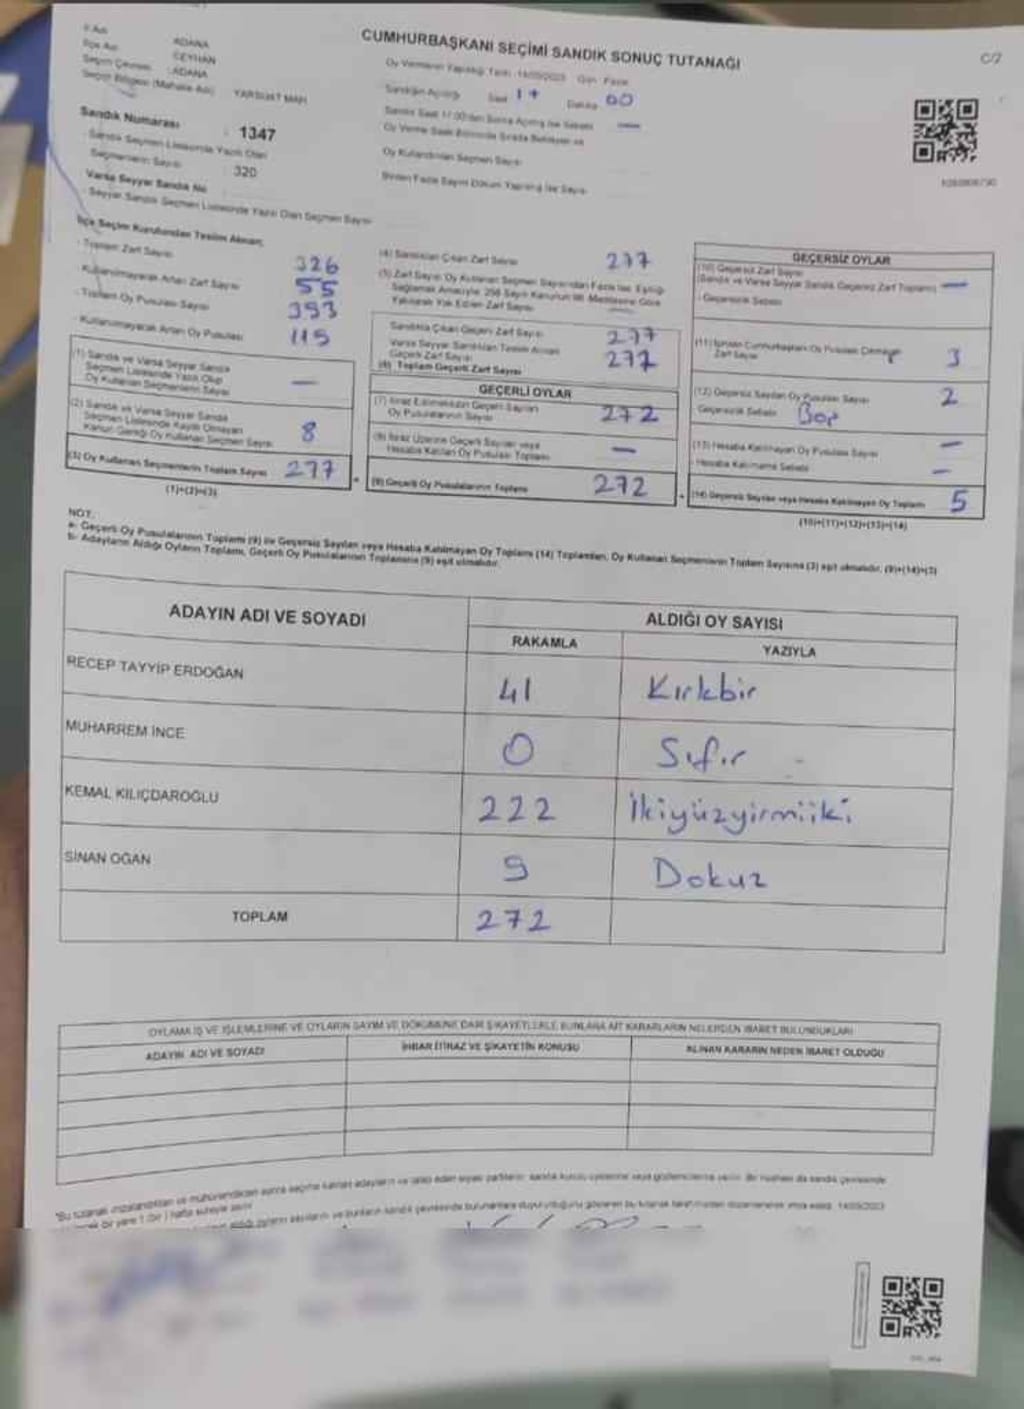 CUMHURBAŞKANI SEÇİMİ SANDIK SONUÇ TUTANAĞI
C/2
İl Adı ADANA
İlçe Adı CEYHAN
Seçim Çevresi : ADANA
Seçim Bölgesi (Mahalle Adı) YARSUAT MAH
Oy Vermenin Yapıldığı Tarih 14/05/2023 Gün Pazar
Sandığın Açıldığı Saat 17 Dakika 00
Sandık Numarası : 1347
Sandık Seçmen Listesinde Yazılı Olan Seçmenlerin Sayısı : 320
Varsa Seyyar Sandık No
Seyyar Sandık Seçmen Listesinde Yazılı Olan Seçmen Sayısı
Oy Kullandırılan Seçmen Sayısı
Birden Fazla Sayım Döküm Yapılmış ise Sayısı
İlçe Seçim Kurulundan Teslim Alınan;
Toplam Zarf Sayısı 326
Kullanılmayarak Artan Zarf Sayısı 55
Toplam Oy Pusulası Sayısı 393
Kullanılmayarak Artan Oy Pusulası 115
(1) Sandık ve Varsa Seyyar Sandık
Seçmen Listesinde Yazılı Olup
Oy Kullanan Seçmenlerin Sayısı —
(2) Sandık ve Varsa Seyyar Sandık
Seçmen Listesinde Kayıtlı Olmayan
Kanun Gereği Oy Kullanan Seçmen Sayısı 8
(3) Oy Kullanan Seçmenlerin Toplam Sayısı 277
(1)+(2)=(3)
(4) Sandıktan Çıkan Zarf Sayısı 277
(5) Zarf Sayısı Oy Kullanan Seçmen Sayısından Fazla ise, Eşitliği
Sağlamak Amacıyla, 298 Sayılı Kanunun 98. Maddesine Göre
Yakılarak Yok Edilen Zarf Sayısı —
Sandıkta Çıkan Geçerli Zarf Sayısı 277
Varsa Seyyar Sandıktan Teslim Alınan
Geçerli Zarf Sayısı
(6) Toplam Geçerli Zarf Sayısı 277
GEÇERLİ OYLAR
(7) İtiraz Edilmeksizin Geçerli Sayılan
Oy Pusulalarının Sayısı 272
(8) İtiraz Üzerine Geçerli Sayılan veya
Hesaba Katılan Oy Pusulası Toplamı —
(9) Geçerli Oy Pusulalarının Toplamı 272
GEÇERSİZ OYLAR
(10) Geçersiz Zarf Sayısı
(Sandık ve Varsa Seyyar Sandık Geçersiz Zarf Toplamı) —
Geçersizlik Sebebi
(11) İçinden Cumhurbaşkanı Oy Pusulası Çıkmayan
Zarf Sayısı 3
(12) Geçersiz Sayılan Oy Pusulası Sayısı 2
Geçersizlik Sebebi Boş
(13) Hesaba Katılmayan Oy Pusulası Sayısı —
Hesaba Katılmama Sebebi —
(14) Geçersiz Sayılan veya Hesaba Katılmayan Oy Toplamı 5
(10)+(11)+(12)+(13)=(14)
NOT:
a- Geçerli Oy Pusulalarının Toplamı (9) ile Geçersiz Sayılan veya Hesaba Katılmayan Oy Toplamı (14) Toplamları, Oy Kullanan Seçmenlerin Toplam Sayısına (3) eşit olmalıdır. (9)+(14)=(3)
b- Adayların Aldığı Oyların Toplamı, Geçerli Oy Pusulalarının Toplamına (9) eşit olmalıdır.
ADAYIN ADI VE SOYADI ALDIĞI OY SAYISI
RAKAMLA YAZIYLA
RECEP TAYYİP ERDOĞAN 41 Kırkbir
MUHARREM İNCE 0 Sıfır -
KEMAL KILIÇDAROĞLU 222 İkiyüzyirmiiki
SİNAN OĞAN 9 Dokuz
TOPLAM 272
OYLAMA İŞ VE İŞLEMLERİNE VE OYLARIN SAYIM VE DÖKÜMÜNE DAİR ŞİKAYETLERLE BUNLARA AİT KARARLARIN NELERDEN İBARET BULUNDUKLARI
ADAYIN ADI VE SOYADI İHBAR İTİRAZ VE ŞİKAYETİN KONUSU ALINAN KARARIN NEDEN İBARET OLDUĞU